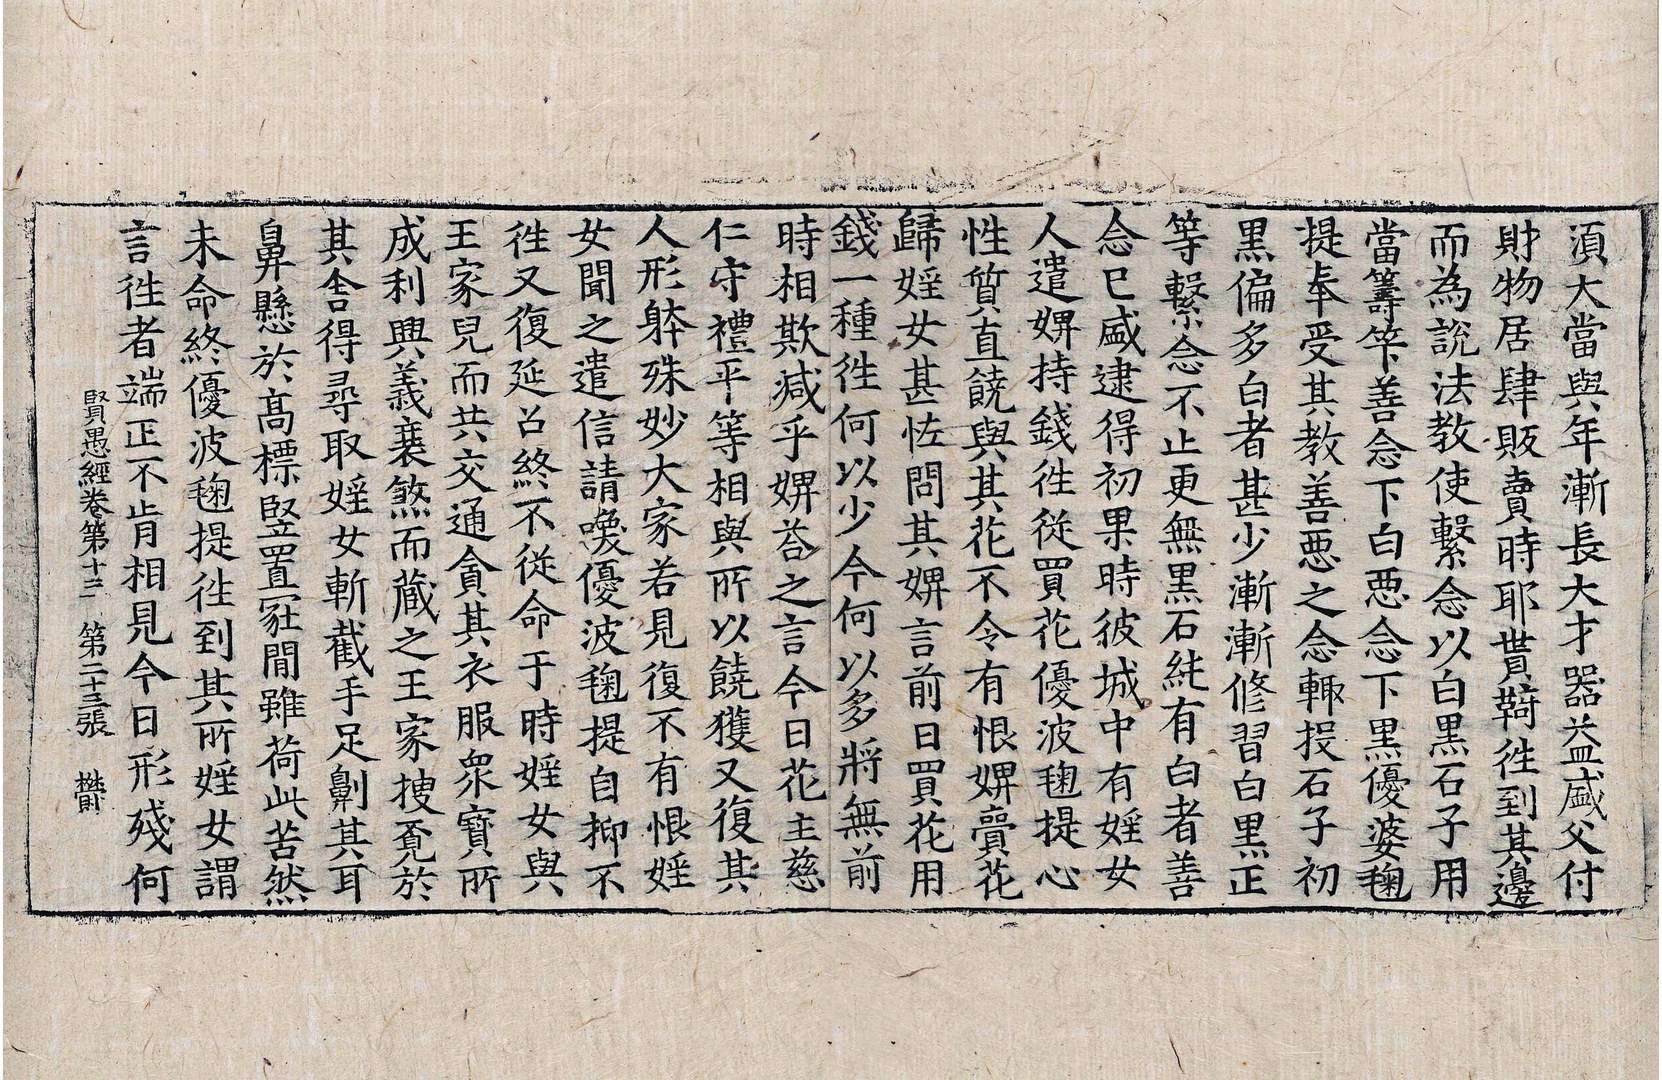 湏大當與年漸長大才器益盛父付
財物居肆販賣時耶貰䩭徃到其邊
而為說法教使繫念以白黑石子用
當籌筭善念下白惡念下黑優婆毱
提奉受其教善惡之念輙投石子初
黑偏多白者甚少漸漸修習白黑正
等繫念不止更無黑石純有白者善
念已盛逮得初果時彼城中有婬女
人遣婢持錢徃從買花優波毱提心
性質直饒與其花不令有恨婢賷花
歸婬女甚怪問其婢言前日買花用
錢一種徃何以少今何以多將無前
時相欺减乎婢荅之言今日花主慈
仁守禮平等相與所以饒獲又復其
人形躰殊妙大家若見復不有恨婬
女聞之遣信請喚優波毱提自抑不
徃又復延召終不從命于時婬女與
王家兒而共交通貪其衣服衆寶所
成利興義衰煞而藏之王家捜覔於
其舍得尋取婬女斬截手足劓其耳
鼻懸於高標竪置冢閒雖荷此苦然
未命終優波毱提徃到其所婬女謂
言徃者端正不肯相見今日形殘何
賢愚經卷第十三 第二十三張